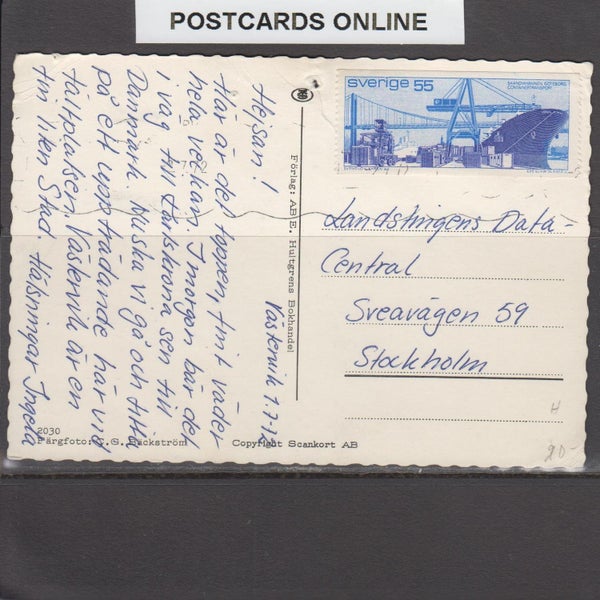 POSTCARDS ONLINE
sverige 55
SKANDIAHAMNEN, GÖTEBORG
CONTAINERTRANSPORT
Västervik 1.7-73
Hejsan!
Här är det toppen, fint väder
hela veckan. I morgon bär det
i väg till Karlskrona sen till
Danmark. Nu ska vi gå och titta
på ett uppträdande här vid
tältplatsen. Västervik är en
fin liten Stad. Hälsningar Ingela
Förlag: AB E. Hultgrens Bokhandel
Landstingens Data-
Central
Sveavägen 59
Stockholm
2030
Färgfoto: C. G. Bäckström
Copyright Scankort AB
H
20-